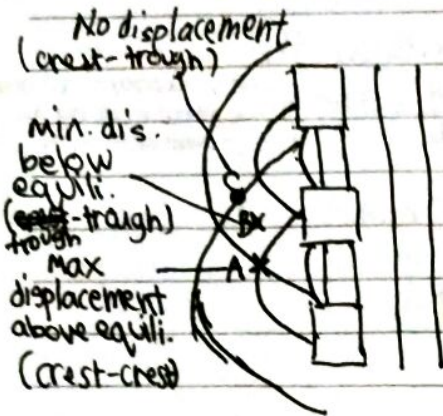 No displacement
(crest-trough)
min. dis.
below
equili.
(trough-trough)
max
displacement
above equili.
(crest-crest)
C
BX
A